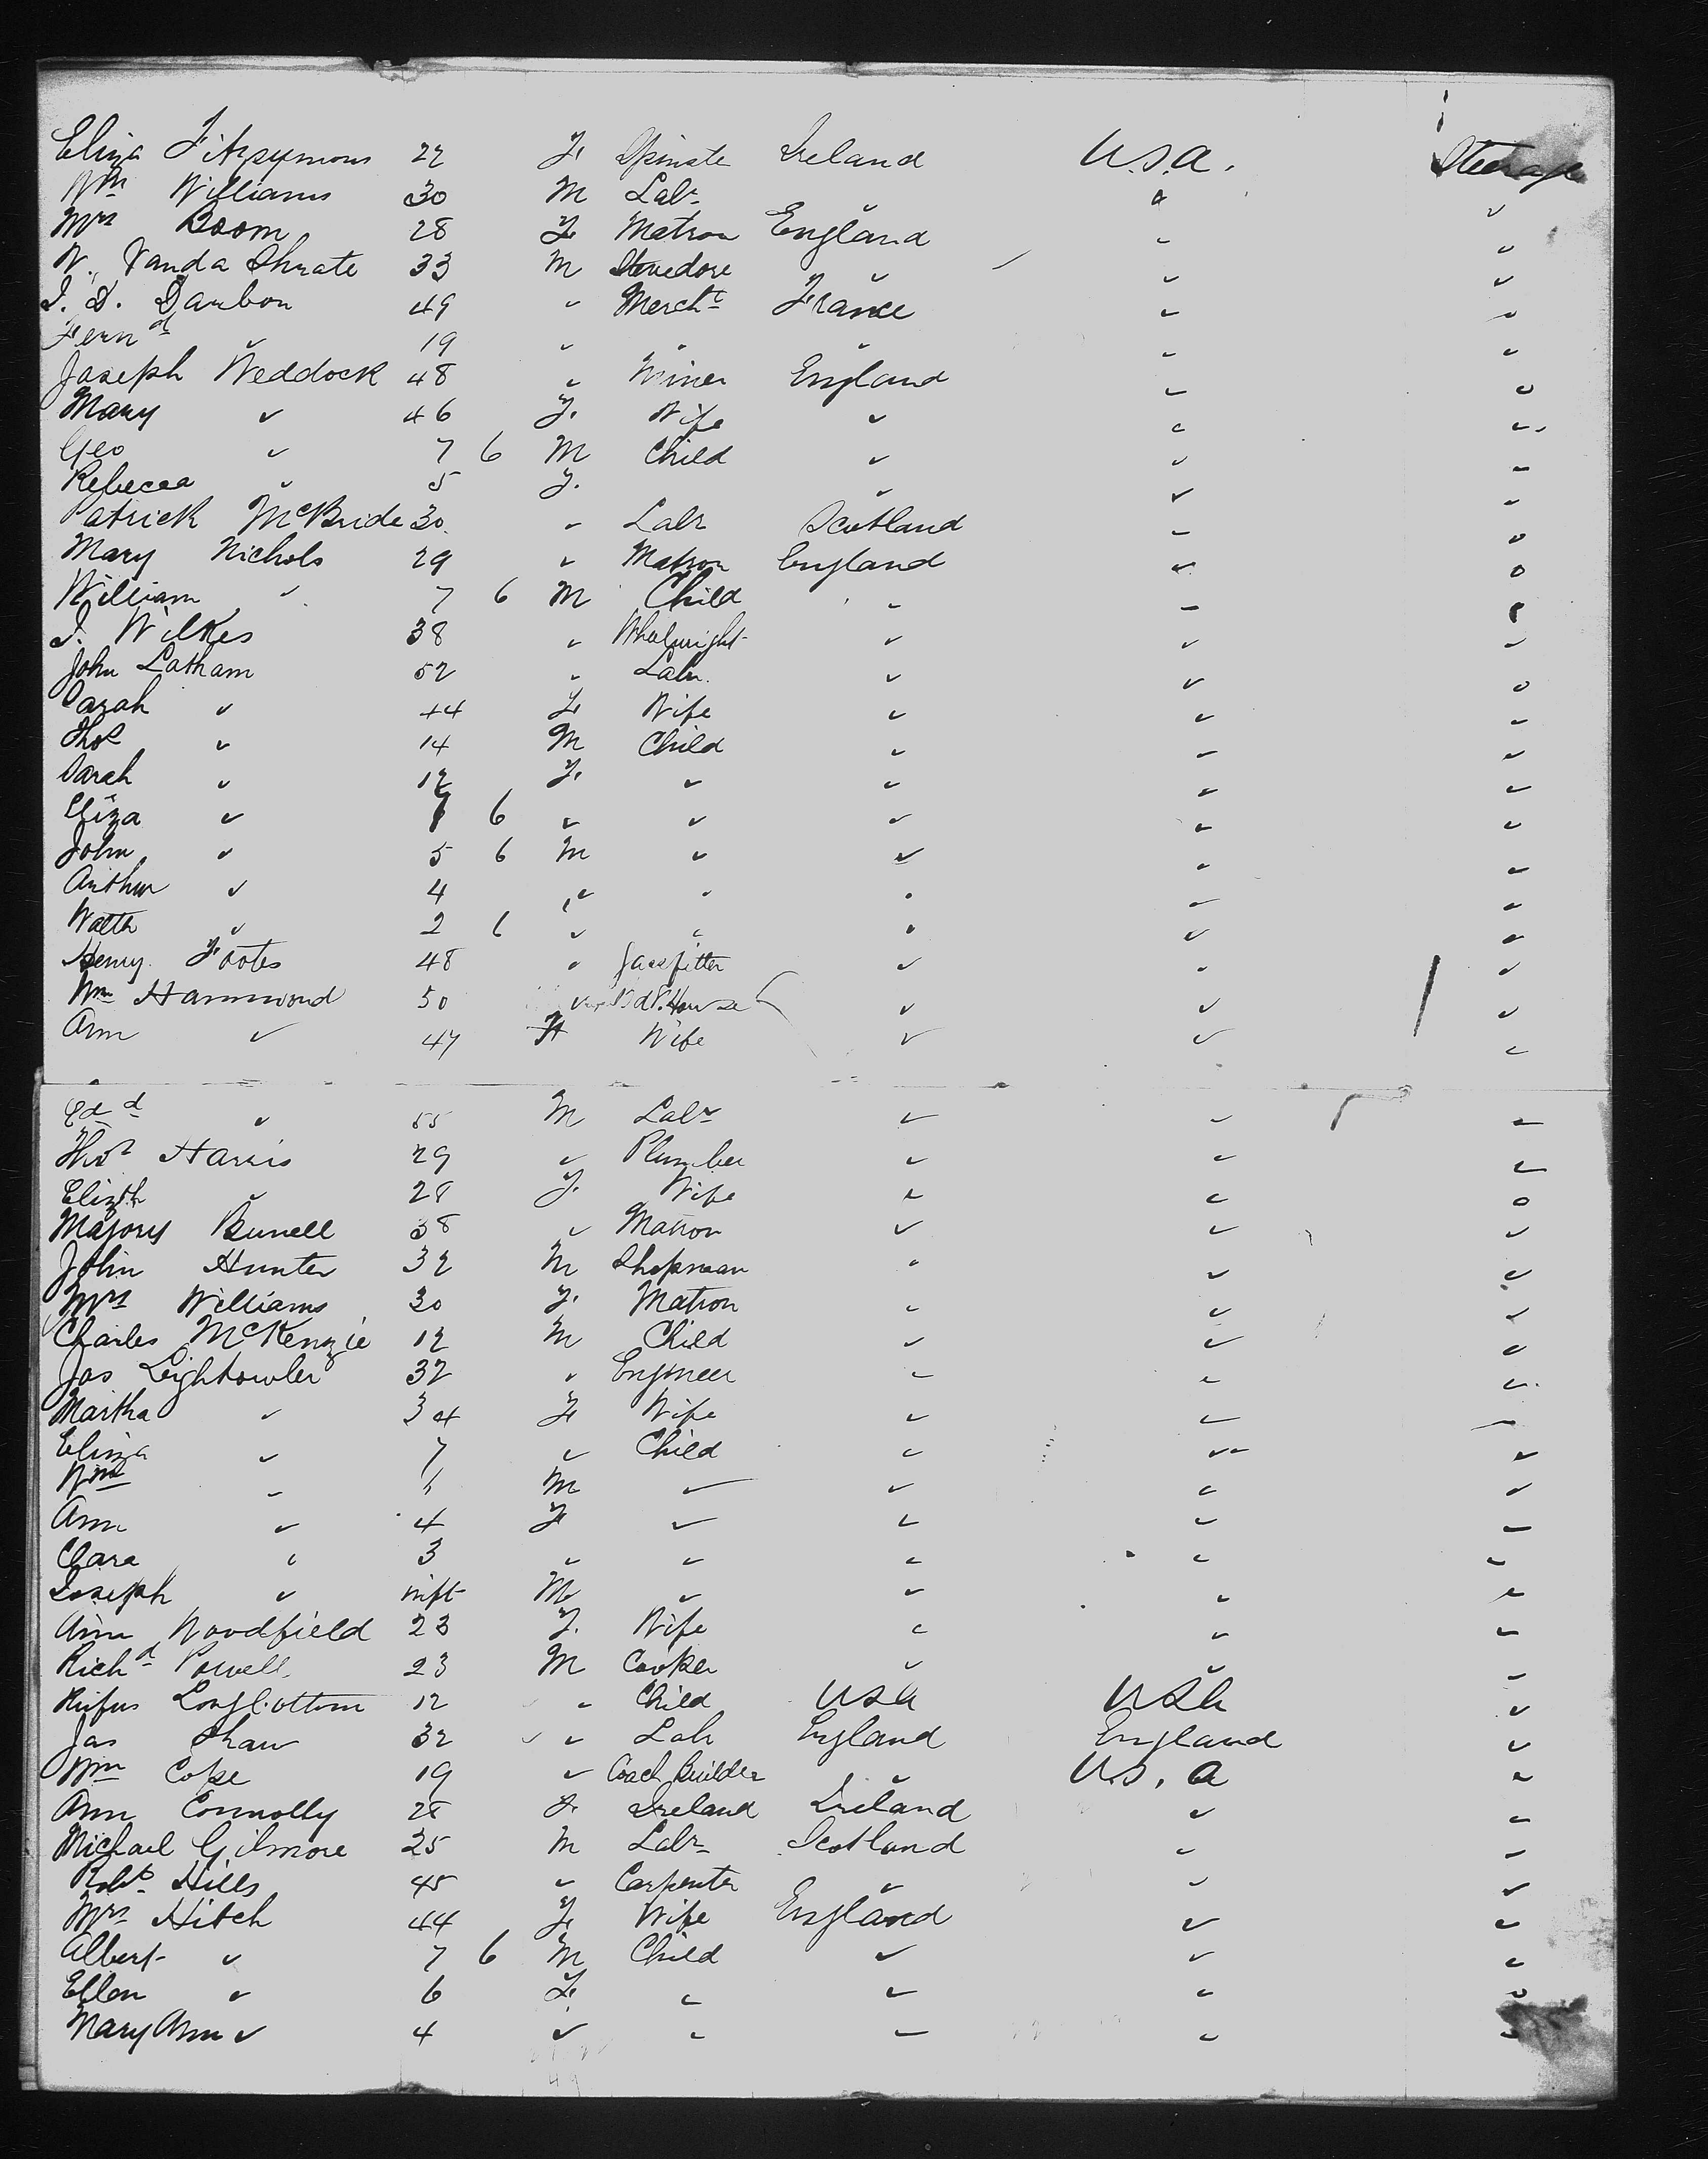 Eliza Fitzsymons 22 F. Spinste Ireland U.S.A. Steerage
Wm Williams 30 M Labr " " "
Mrs Boom 28 F Matron England " "
W. Vanda Shrate 33 M Stevedore " " "
J. D. Darbon 49 " Mercht France " "
Fernd " 19 " " " " "
Joseph Weddock 48 " Miner England " "
Mary " 46 F. Wife " " "
Geo " 7 6 M Child " " "
Rebecca " 5 F. " " "
Patrick McBride 30 " Labr Scotland " "
Mary Nichols 29 " Matron England " "
William " 7 6 M Child " " "
J. Wilkes 38 " Whelwright " " "
John Latham 52 " Labr. " " "
Sarah " 44 F Wife " " "
Thos " 14 M Child " " "
Sarah " 12 F. " " " "
Eliza " 6 " " " " "
John " 5 6 M " " " "
Arthur " 4 " " " " "
Walter " 2 6 " " " " "
Henry Footes 48 " Gassfitter " " "
Wm Hammond 50 " " "
Ann " 47 Wife " " "
Edd " 55 M Labr " " "
Thos Harris 29 " Plumber " " "
Elizth " 28 F. Wife " " "
Majory Bunell 38 " Matron " " "
John Hunter 32 M Shopman " " "
Mrs Williams 30 F. Matron " " "
Charles McKenzie 12 M Child " " "
Jas Leightowler 32 " Engineer " " "
Martha " 34 F Wife " " "
Eliza " 7 " Child " " "
Wm " M " " " "
Ann " 4 F " " " "
Clara " 3 " " " " "
Joseph " inft M " " " "
Ann Woodfield 23 F. Wife " " "
Richd Powell 23 M Cooper " " "
Rufus Longbottom 12 " Child USA USA "
Jas Shaw 32 " Labr England England "
Wm Cope 19 " Coach Builder " U.S.A "
Ann Connolly 28 F. Ireland Ireland " "
Michael Gilmore 25 M Labr Scotland " "
Robt Hills 45 " Carpenter " " "
Mrs Hitch 44 F Wife England " "
Albert " 7 6 M Child " " "
Ellen " 6 F. " " " "
Mary Ann " 4 " " " " "